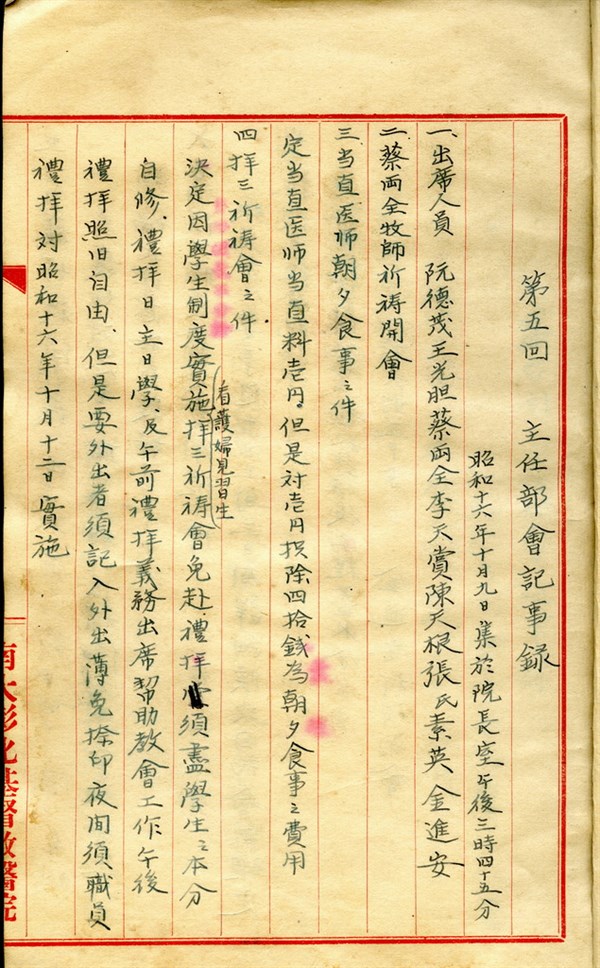 第五回 主任部會記事録
昭和十六年十月九日集於院長室午後三時四十五分
一、出席人員 阮德茂王光胆蔡両全李天賞陳天根張氏素英金進安
二蔡両全牧師祈祷開會
三当直医师朝夕食事之件
定当直医师当直料壱円。但是対壱円扱除四拾錢為朝夕食事之費用
四拝三祈祷會之件.
(看護婦見習生)
決定因學生制度實施拝三祈祷會免赴禮拝堂須盡學生之本分
自修、禮拝日主日學、及午前禮拝義務出席幫助教會工作、午後
禮拝照旧自由、但是要外出者須記入外出薄免捺印夜间須職員
禮拝対昭和十六年十月十二日實施
彰化基督教醫院